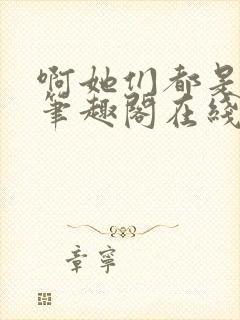 啊她们都是
笔趣阁在线
章宁